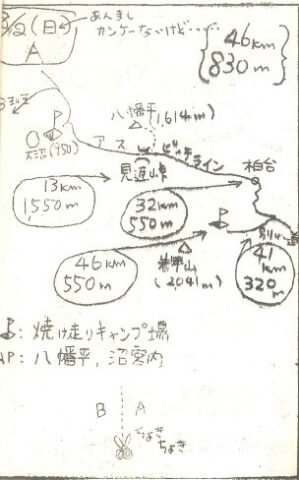 8/2(日)
A
あんまし
カンケーないけど……
46km
830m
八幡平
(1,614m)
大沼(950)
アスピーテライン
見返峠
柏台
13km
1,550m
32km
550m
46km
550m
岩手山
(2041m)
41
km
320
m
: 焼け走りキャンプ場
AP: 八幡平, 沼宮内
B A
ちょき
ちょき